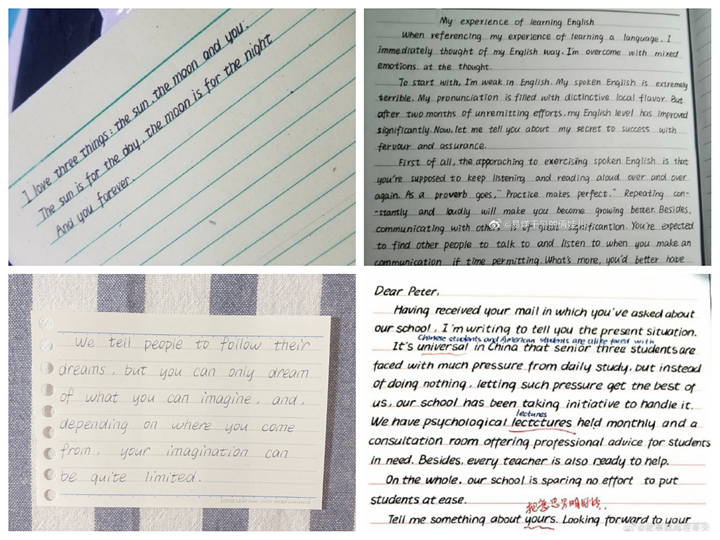 I love three things: the sun, the moon and you.
The sun is for the day, the moon is for the night
And you forever.
My experience of learning English
When referencing my experience of learning a language, I
immediately thought of my English way. I'm overcome with mixed
emotions at the thought.
To start with, I'm weak in English. My spoken English is extremely
terrible. My pronunciation is filled with dictinctive local flavor. But
after two months of unremitting efforts, my English level has improved
significantly. Now, let me tell you about my secret to success with
fervour and assurance.
First of all, the apporaching to exercising spoken English is that
you're supposed to keep listening and reading aloud over and over
again. As a proverb goes, "Practice makes perfect." Repeating con-
-stantly and loudly will make you become growing better. Besides,
communicating with others is of great significantion. You're expected
to find other people to talk to and listen to when you make an
communication if time permitting. What's more, you'd better have
We tell people to follow their
dreams, but you can only dream
of what you can imagine, and,
depending on where you come
from, your imagination can
be quite limited.
Dear Peter,
Having received your mail in which you've asked about
our school, I'm writing to tell you the present situation.
Chinese students and American students are alike faced with
It's universal in China that senior three students are
faced with much pressure from daily study, but instead
of doing nothing, letting such pressure get the best of
us, our school has been taking initiative to handle it.
lectures
We have psychological lectctures held monthly and a
consultation room offering professional advice for students
in need. Besides, every teacher is also ready to help.
On the whole, our school is sparing no effort to put
students at ease.
Tell me something about yours. Looking forward to your